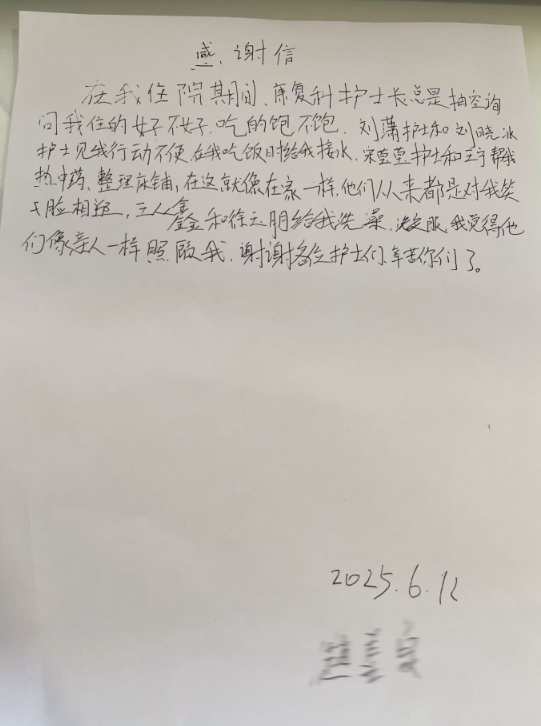 感谢信
在我住院期间,康复科护士长总是抽空询
问我住的好不好,吃的饱不饱,刘萧护士和刘晓冰
护士见我行动不便,在我吃饭时给我接水,宋莹莹护士和王宁帮我
热中药、整理床铺,在这就像在家一样,他们从来都是对我笑
脸相迎,
鑫和徐云朋给我洗澡,洗衣服,我觉得他
们像亲人一样照顾我,谢谢各位护士们,辛苦你们了。
2025.6.12